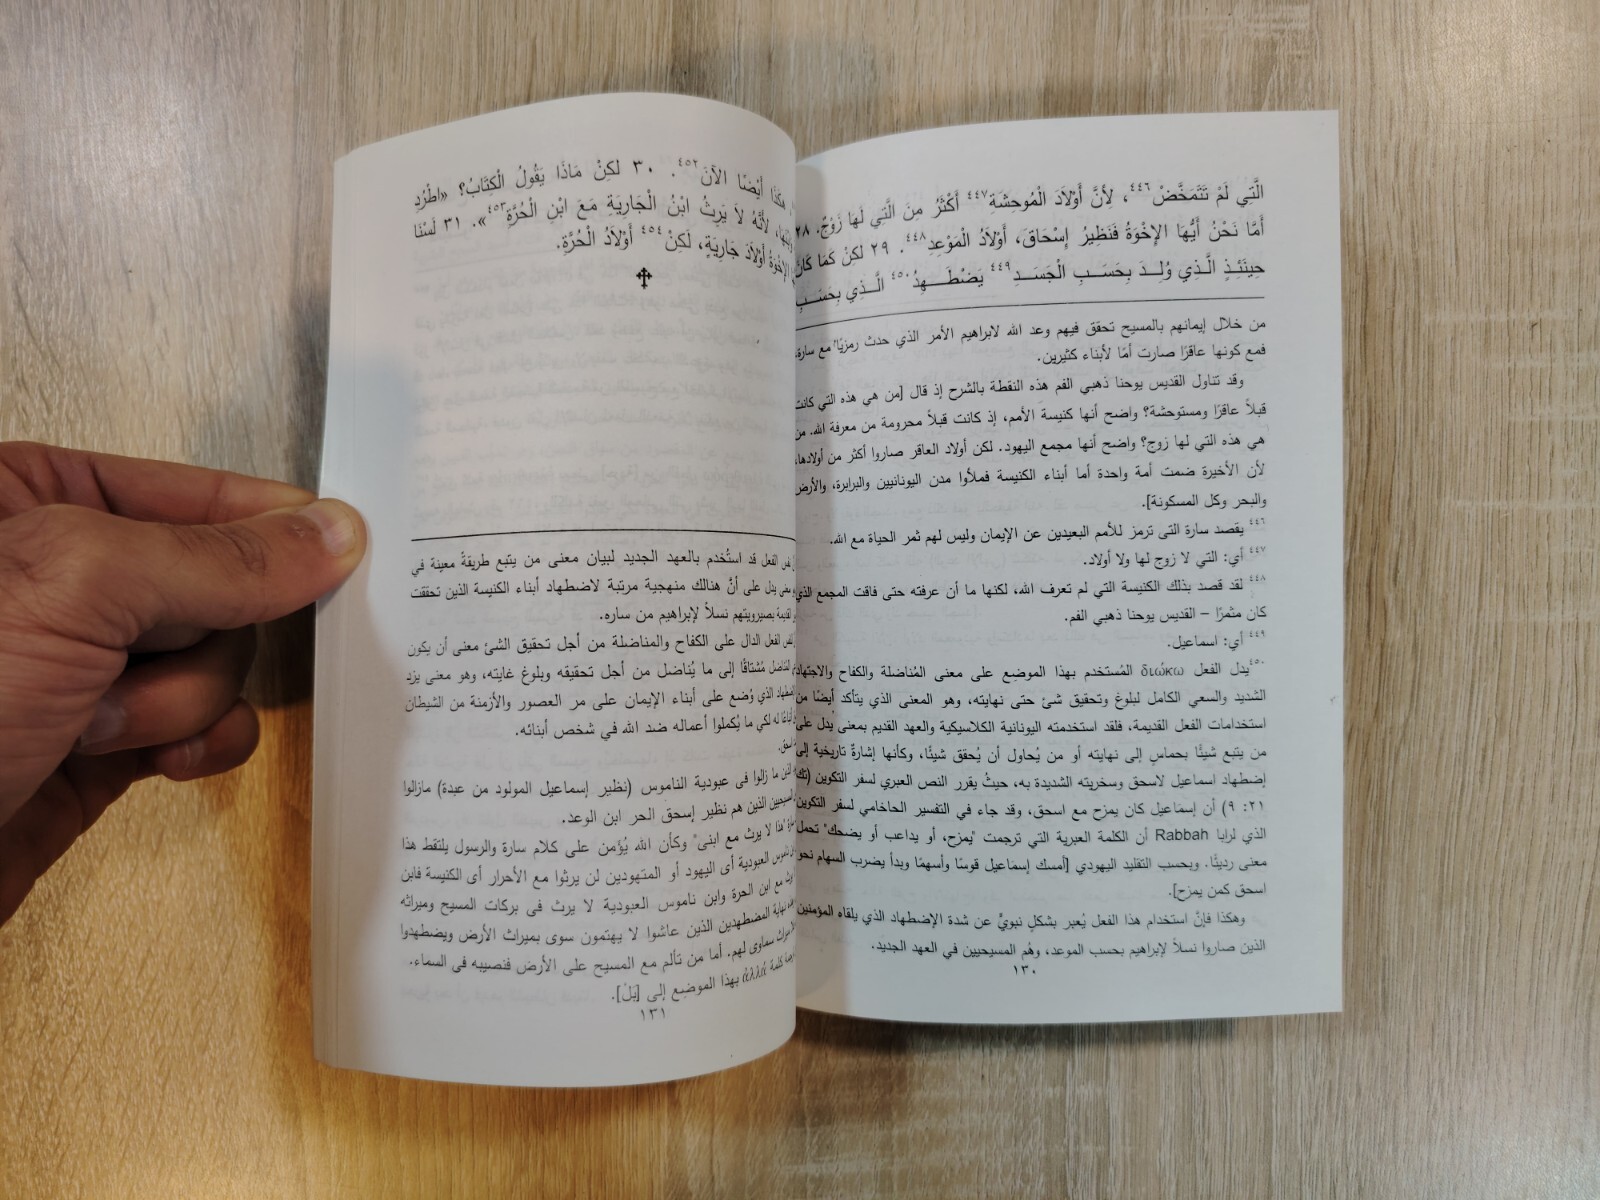 الَّتِي لَمْ تَتَمَخَّضْ٤٤٦، لِأَنَّ أَوْلَادَ الْمُوحِشَةِ٤٤٧ أَكْثَرُ مِنَ الَّتِي لَهَا زَوْجٌ. ٢٨
أَمَّا نَحْنُ أَيُّهَا الإِخْوَةُ فَنَظِيرُ إِسْحَاقَ، أَوْلَادُ الْمَوْعِدِ٤٤٨. ٢٩ لكِنْ كَمَا كَانَ
حِينَئِذٍ الَّذِي وُلِدَ بِحَسَبِ الْجَسَدِ٤٤٩ يَضْطَهِدُ٤٥٠ الَّذِي بِحَسَبِ
من خلال إيمانهم بالمسيح تحقق فيهم وعد الله لابراهيم الأمر الذي حدث رمزيًا مع سارة،
فمع كونها عاقرًا صارت أمًا لأبناء كثيرين.
وقد تناول القديس يوحنا ذهبي الفم هذه النقطة بالشرح إذ قال [من هي هذه التي كانت
قبلاً عاقرًا ومستوحشة؟ واضح أنها كنيسة الأمم، إذ كانت قبلاً محرومة من معرفة الله. من
هي هذه التي لها زوج؟ واضح أنها مجمع اليهود. لكن أولاد العاقر صاروا أكثر من أولادها،
لأن الأخيرة ضمت أمة واحدة أما أبناء الكنيسة فملأوا مدن اليونانيين والبرابرة، والأرض
والبحر وكل المسكونة].
٤٤٦ يقصد سارة التى ترمز للأمم البعيدين عن الإيمان وليس لهم ثمر الحياة مع الله.
٤٤٧ أي: التي لا زوج لها ولا أولاد.
٤٤٨ لقد قصد بذلك الكنيسة التي لم تعرف الله، لكنها ما أن عرفته حتى فاقت المجمع الذي
كان مثمرًا – القديس يوحنا ذهبي الفم.
٤٤٩ أي: اسماعيل.
٤٥٠ يدل الفعل διώκω المُستخدم بهذا الموضع على معنى المُناضلة والكفاح والاجتهاد
الشديد والسعي الكامل لبلوغ وتحقيق شئ حتى نهايته، وهو المعنى الذي يتأكد أيضًا من
استخدامات الفعل القديمة، فلقد استخدمته اليونانية الكلاسيكية والعهد القديم بمعنى يدل على
من يتبع شيئًا بحماسٍ إلى نهايته أو من يُحاول أن يُحقق شيئًا، وكأنها إشارةٌ تاريخية إلى
إضطهاد اسماعيل لاسحق وسخريته الشديدة به، حيثُ يقرر النص العبري لسفر التكوين (تك
٢١: ٩) أن إسماعيل كان يمزح مع اسحق، وقد جاء في التفسير الحاخامي لسفر التكوين
الذي لرابا Rabbah أن الكلمة العبرية التي ترجمت "يمزح، أو يداعب أو يضحك" تحمل
معنى رديئًا. وبحسب التقليد اليهودي [أمسك إسماعيل قوسًا وأسهمًا وبدأ يضرب السهام نحو
اسحق كمن يمزح].
وهكذا فإنَّ استخدام هذا الفعل يُعبر بشكلٍ نبويٍّ عن شدة الإضطهاد الذي يلقاه المؤمنين
الذين صاروا نسلاً لإبراهيم بحسب الموعد، وهُم المسيحيين في العهد الجديد.
١٣٠
هكَذَا أَيْضًا الآنَ٤٥٢. ٣٠ لكِنْ مَاذَا يَقُولُ الْكِتَابُ؟ «اطْرُدِ
لأَنَّهُ لاَ يَرِثُ ابْنُ الْجَارِيَةِ مَعَ ابْنِ الْحُرَّةِ٤٥٣». ٣١ لَسْنَا
الإِخْوَةُ أَوْلاَدَ جَارِيَةٍ، لكِنْ٤٥٤ أَوْلاَدُ الْحُرَّةِ.
نفس الفعل قد استُخدم بالعهد الجديد لبيان معنى من يتبع طريقةً معينة في
يدل على أنَّ هنالك منهجية مرتبة لاضطهاد أبناء الكنيسة الذين تحققت
بصيرورتهم نسلاً لإبراهيم من ساره.
نفس الفعل الدال على الكفاح والمناضلة من أجل تحقيق الشئ معنى أن يكون
المُناضل مُشتاقًا إلى ما يُناضل من أجل تحقيقه وبلوغ غايته، وهو معنى يرْد
الذي وُضع على أبناء الإيمان على مر العصور والأزمنة من الشيطان
له لكي ما يُكملوا أعماله ضد الله في شخص أبنائه.
ما زالوا فى عبودية الناموس (نظير إسماعيل المولود من عبدة) مازالوا
الذين هم نظير إسحق الحر ابن الوعد.
"هذا لا يرث مع ابنى" وكأن الله يُؤمن على كلام سارة والرسول يلتقط هذا
العبودية أى اليهود أو المتهودين لن يرثوا مع الأحرار أى الكنيسة فابن
مع ابن الحرة وابن ناموس العبودية لا يرث فى بركات المسيح وميراثه
نهاية المضطهدين الذين عاشوا لا يهتمون سوى بميراث الأرض ويضطهدوا
ميراث سماوى لهم. أما من تألم مع المسيح على الأرض فنصيبه فى السماء.
كلمة ἀλλά بهذا الموضع إلى [بَلْ].
١٣١